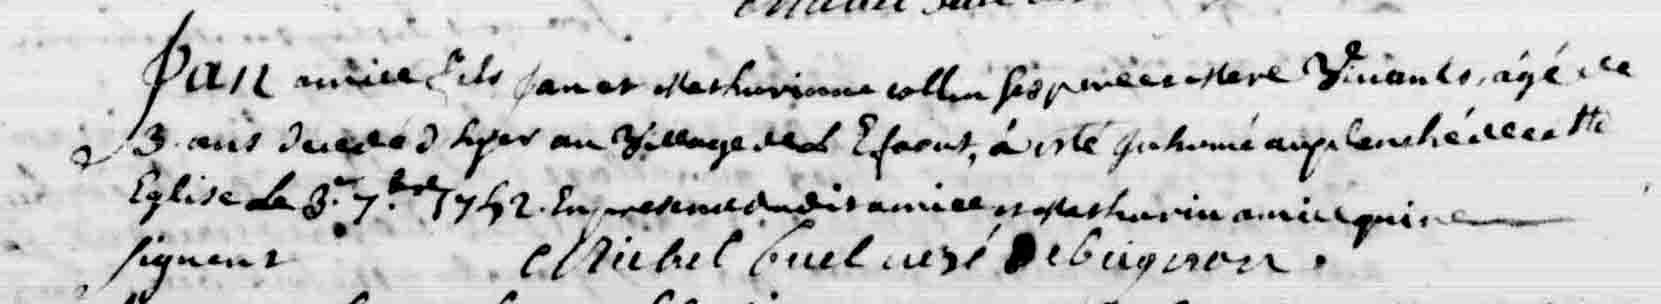 Jan amice fils Jan et Mathurinne collin ses pere et Mere Vivants, âgé de
3. ans decedé d'hyer au Village de L'Efaout, à esté Inhumé au placenché de cette
Eglise Le 3.e 7.bre 1752. En presence dudit amice et Mathurin amice qui ne
signent Michel buel curé de buignon.